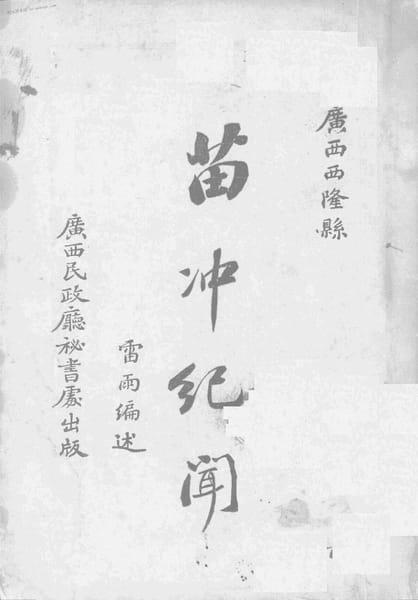 廣西西隆縣
苗冲紀聞
雷雨編述
廣西民政廳祕書處出版